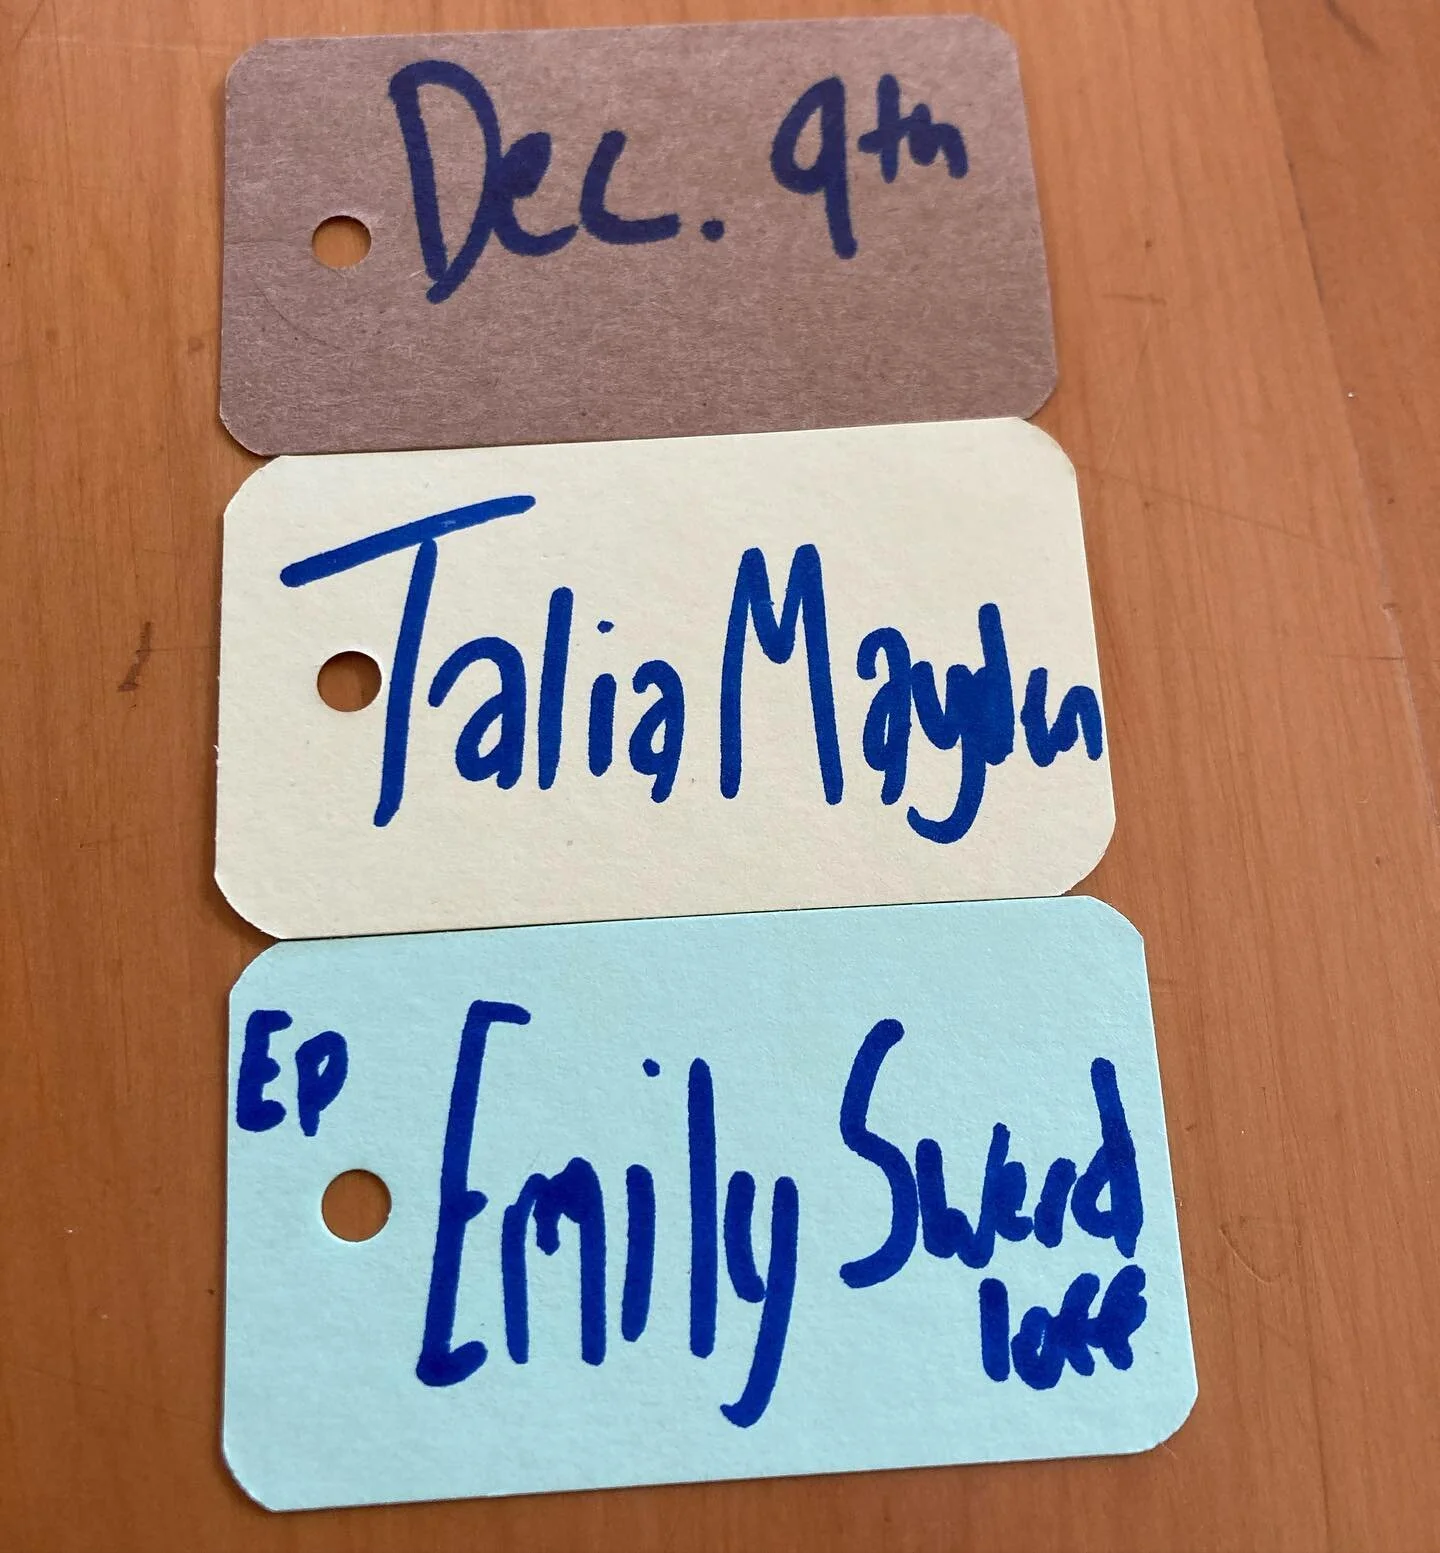 Dec. 9th
Talia Mayden
EP
Emily Swerd
loff